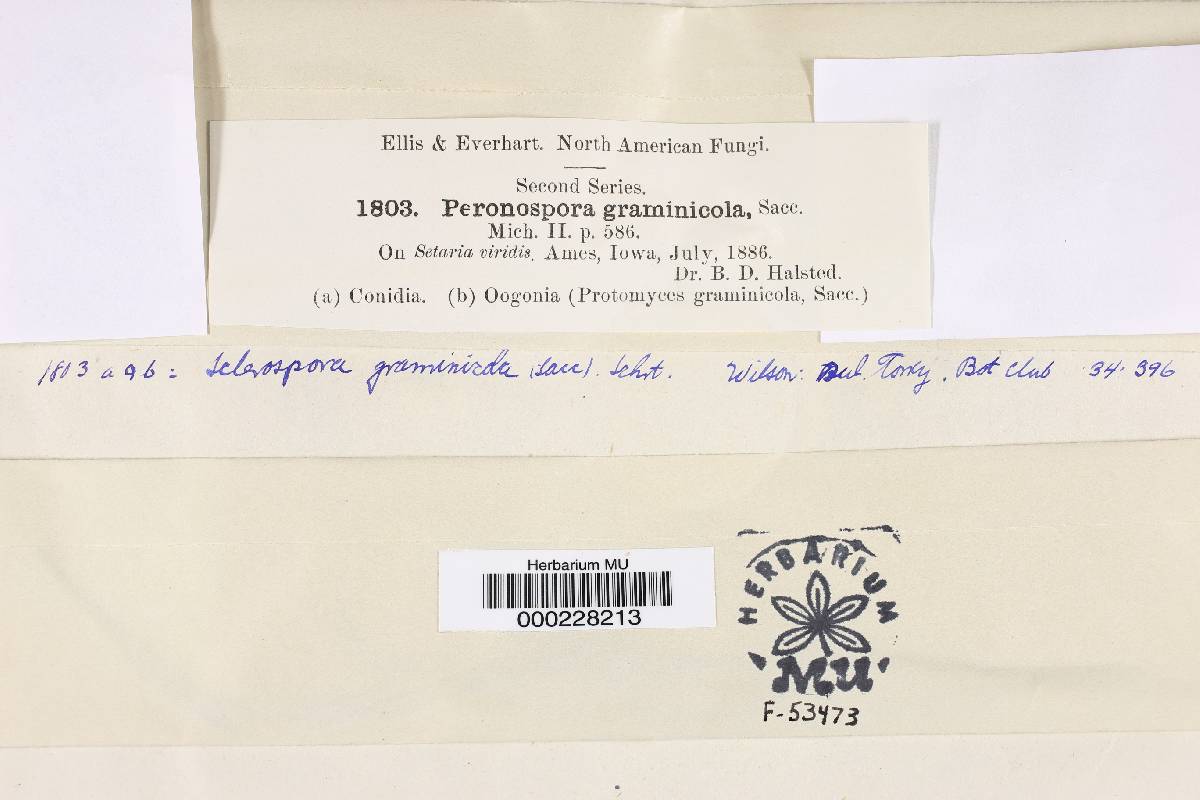 Ellis & Everhart. North American Fungi.
Second Series.
1803. Peronospora graminicola, Sacc.
Mich. II. p. 586.
On Setaria viridis, Ames, Iowa, July, 1886.
Dr. B. D. Halsted.
(a) Conidia. (b) Oogonia (Protomyces graminicola, Sacc.)
1803 a & b = Sclerospora graminicola (Sacc). Schrt. Wilson: Bul. Torry. Bot Club 34. 396
Herbarium MU
000228213
HERBARIUM
MU
F-53473